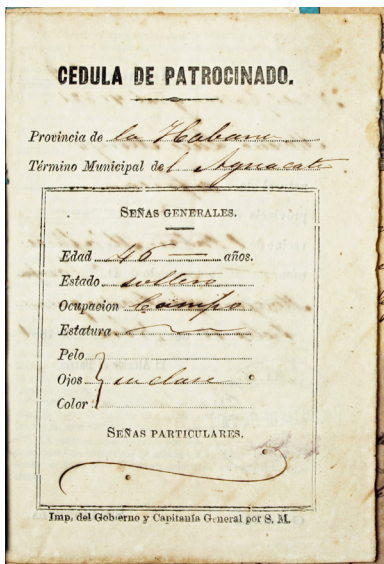 CEDULA DE PATROCINADO.
Provincia de la Habana
Término Municipal del Aguacate
SEÑAS GENERALES.
Edad 46 años.
Estado soltero
Ocupacion Campo
Estatura
Pelo
Ojos su clase
Color
SEÑAS PARTICULARES.
Imp. del Gobierno y Capitanía General por S. M.